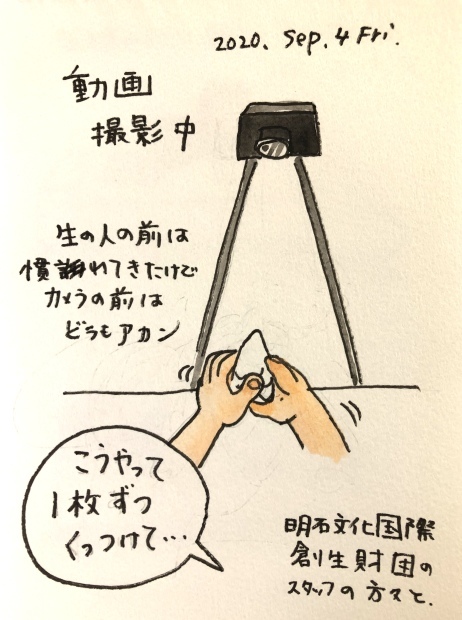 2020. Sep. 4 Fri.
動画
撮影中
生の人の前は
慣れてきたけど
カメラの前は
どうもアカン
こうやって
1枚ずつ
くっつけて…
明石文化国際
創生財団の
スタッフの方々と.